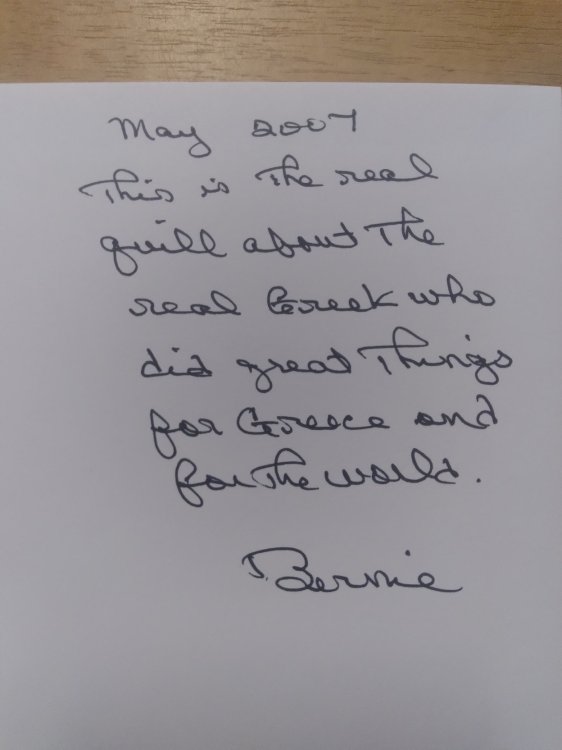 May 2007
This is The real
quill about The
real Greek who
did great Things
for Greece and
for The world.
Bernie